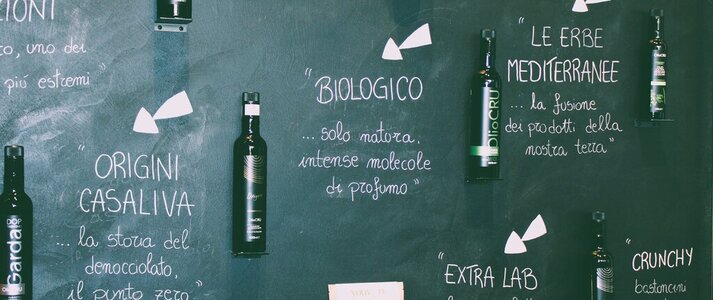 ZIONI
o, uno dei
più estremi"
"ORIGINI
CASALIVA
... la storia del
denocciolato,
il punto zero
"BIOLOGICO
... solo natura,
intense molecole
di profumo"
"LE ERBE
MEDITERRANEE
... la fusione
dei prodotti della
nostra terra"
"EXTRA LAB
"CRUNCHY
bastoncini
Garda
OlioCRU